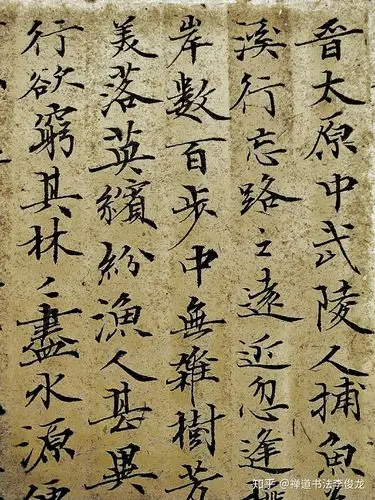 晋太原中武陵人捕魚
溪行忘路之遠近忽逢
岸數百步中無雜樹芳
美落英繽紛漁人甚異
行欲窮其林〻盡水源便
知乎 @禅道书法李俊龙